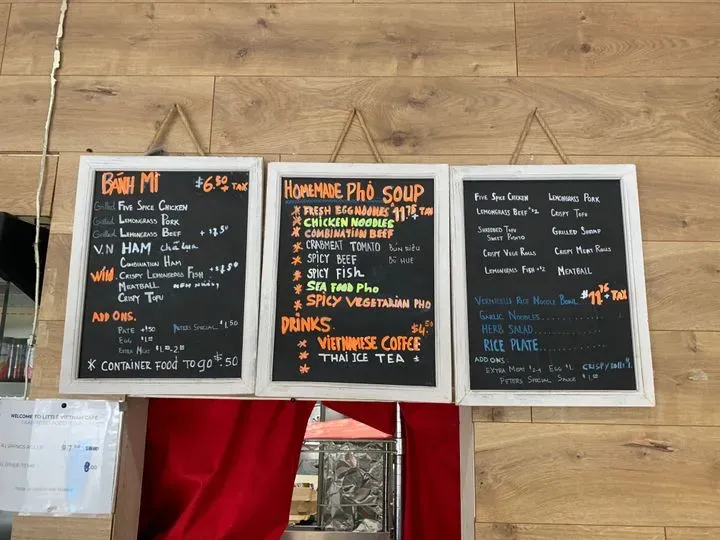 BÁNH MÌ $6.50 + TAX
Grilled FIVE SPICE CHICKEN
Grilled LEMONGRASS PORK
Grilled LEMONGRASS BEEF
V.N HAM Chả Lụa
COMBINATION HAM
Wild CRISPY LEMONGRASS FISH
MEATBALL NEM NƯỚNG
CRISPY TOFU
ADD ONS.
PATE +1.50 PETERS SPECIAL $1.50
EGG
EXTRA MEAT
* CONTAINER FOOD TO GO $.50
HOMEMADE PHỞ SOUP
* FRESH EGG NOODLES 11.75 + TAX
* CHICKEN NOODLES
* COMBINATION BEEF
* CRABMEAT TOMATO BÚN RIÊU
* SPICY BEEF BÒ HUẾ
* SPICY FISH
* SEA FOOD PHO
* SPICY VEGETARIAN PHO
DRINKS $4.50
* VIETNAMESE COFFEE
* THAI ICE TEA
*
FIVE SPICE CHICKEN LEMONGRASS PORK
LEMONGRASS BEEF +2 CRISPY TOFU
SHREDDED TOFU GRILLED SHRIMP
SWEET POTATO
CRISPY VEGE ROLLS CRISPY MEAT ROLLS
LEMONGRASS FISH +2 MEATBALL
VERMICELLI RICE NOODLE BOWL $11.75 + TAX
GARLIC NOODLES
HERB SALAD
RICE PLATE
ADD ONS:
EXTRA MEAT EGG $1
PETERS SPECIAL SAUCE
WELCOME TO LITTLE VIETNAM CAFE